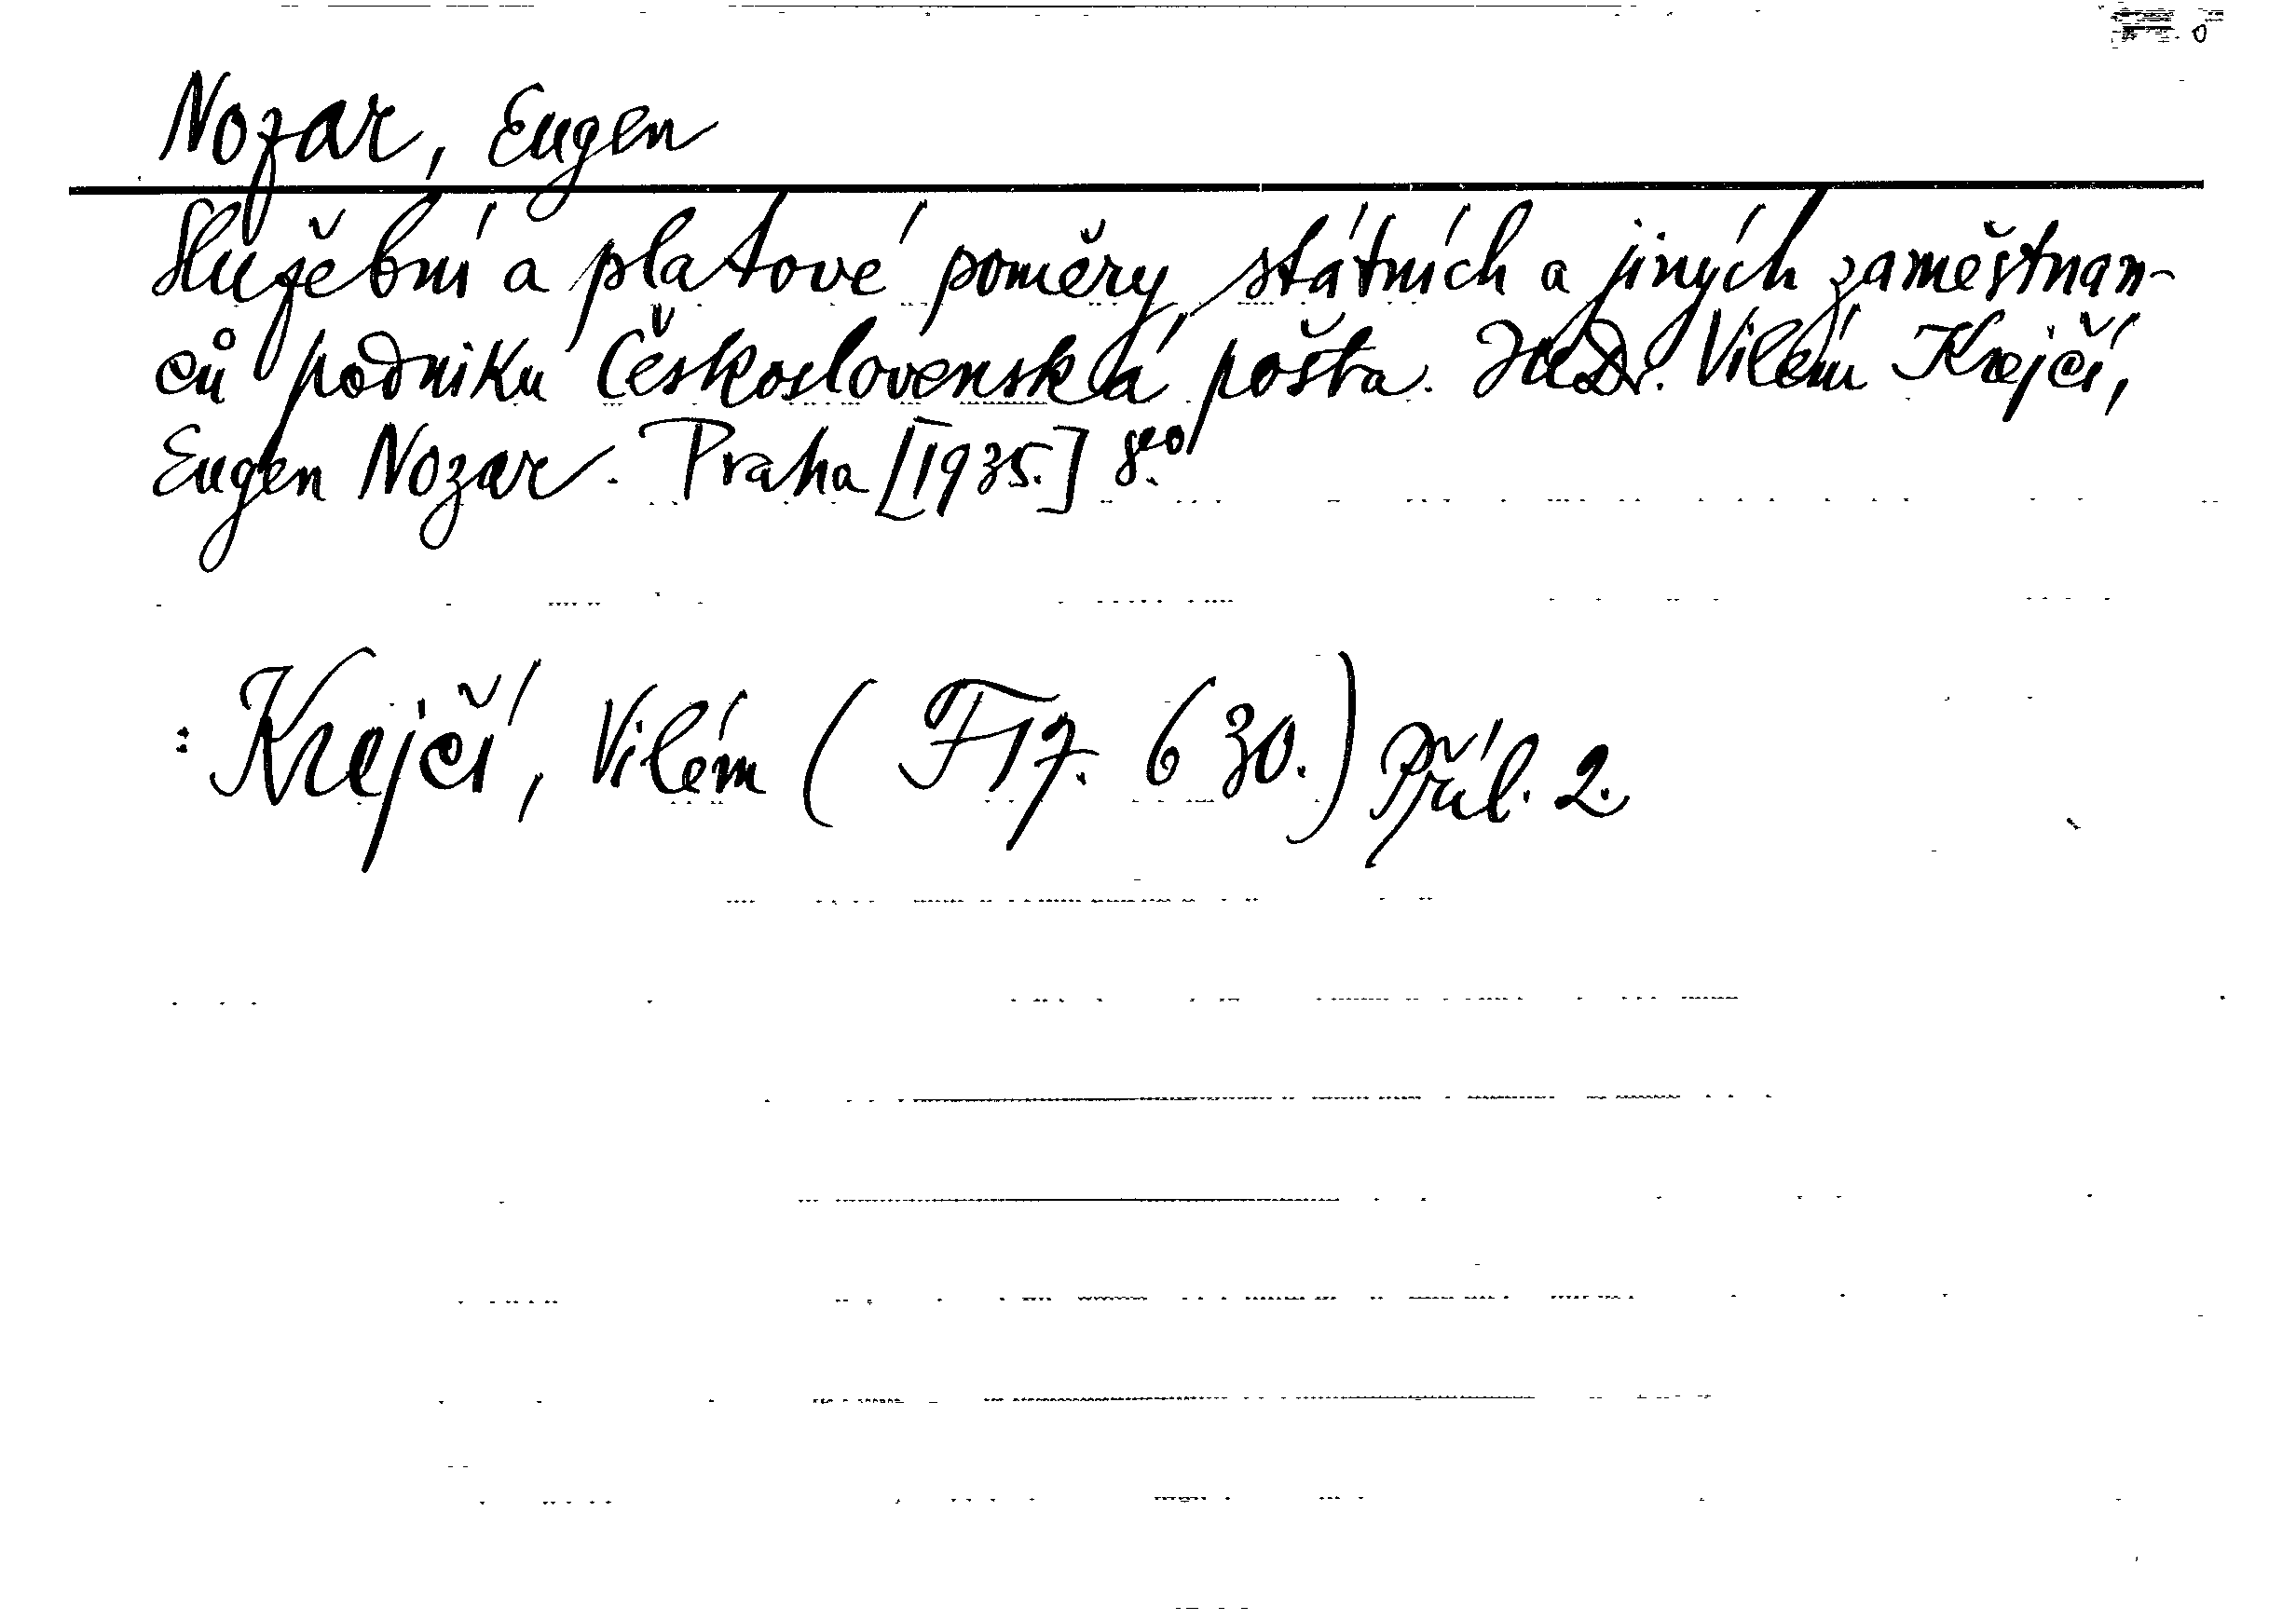 Nozar, Eugen
Služební a platové poměry státních a jiných zaměstnan-
ců podniku Československá pošta. JUDr. Vilém Krejčí,
Eugen Nozar. Praha [1935.] 8.vo
: Krejčí, Vilém (F 17. 630.) Příl. 2.